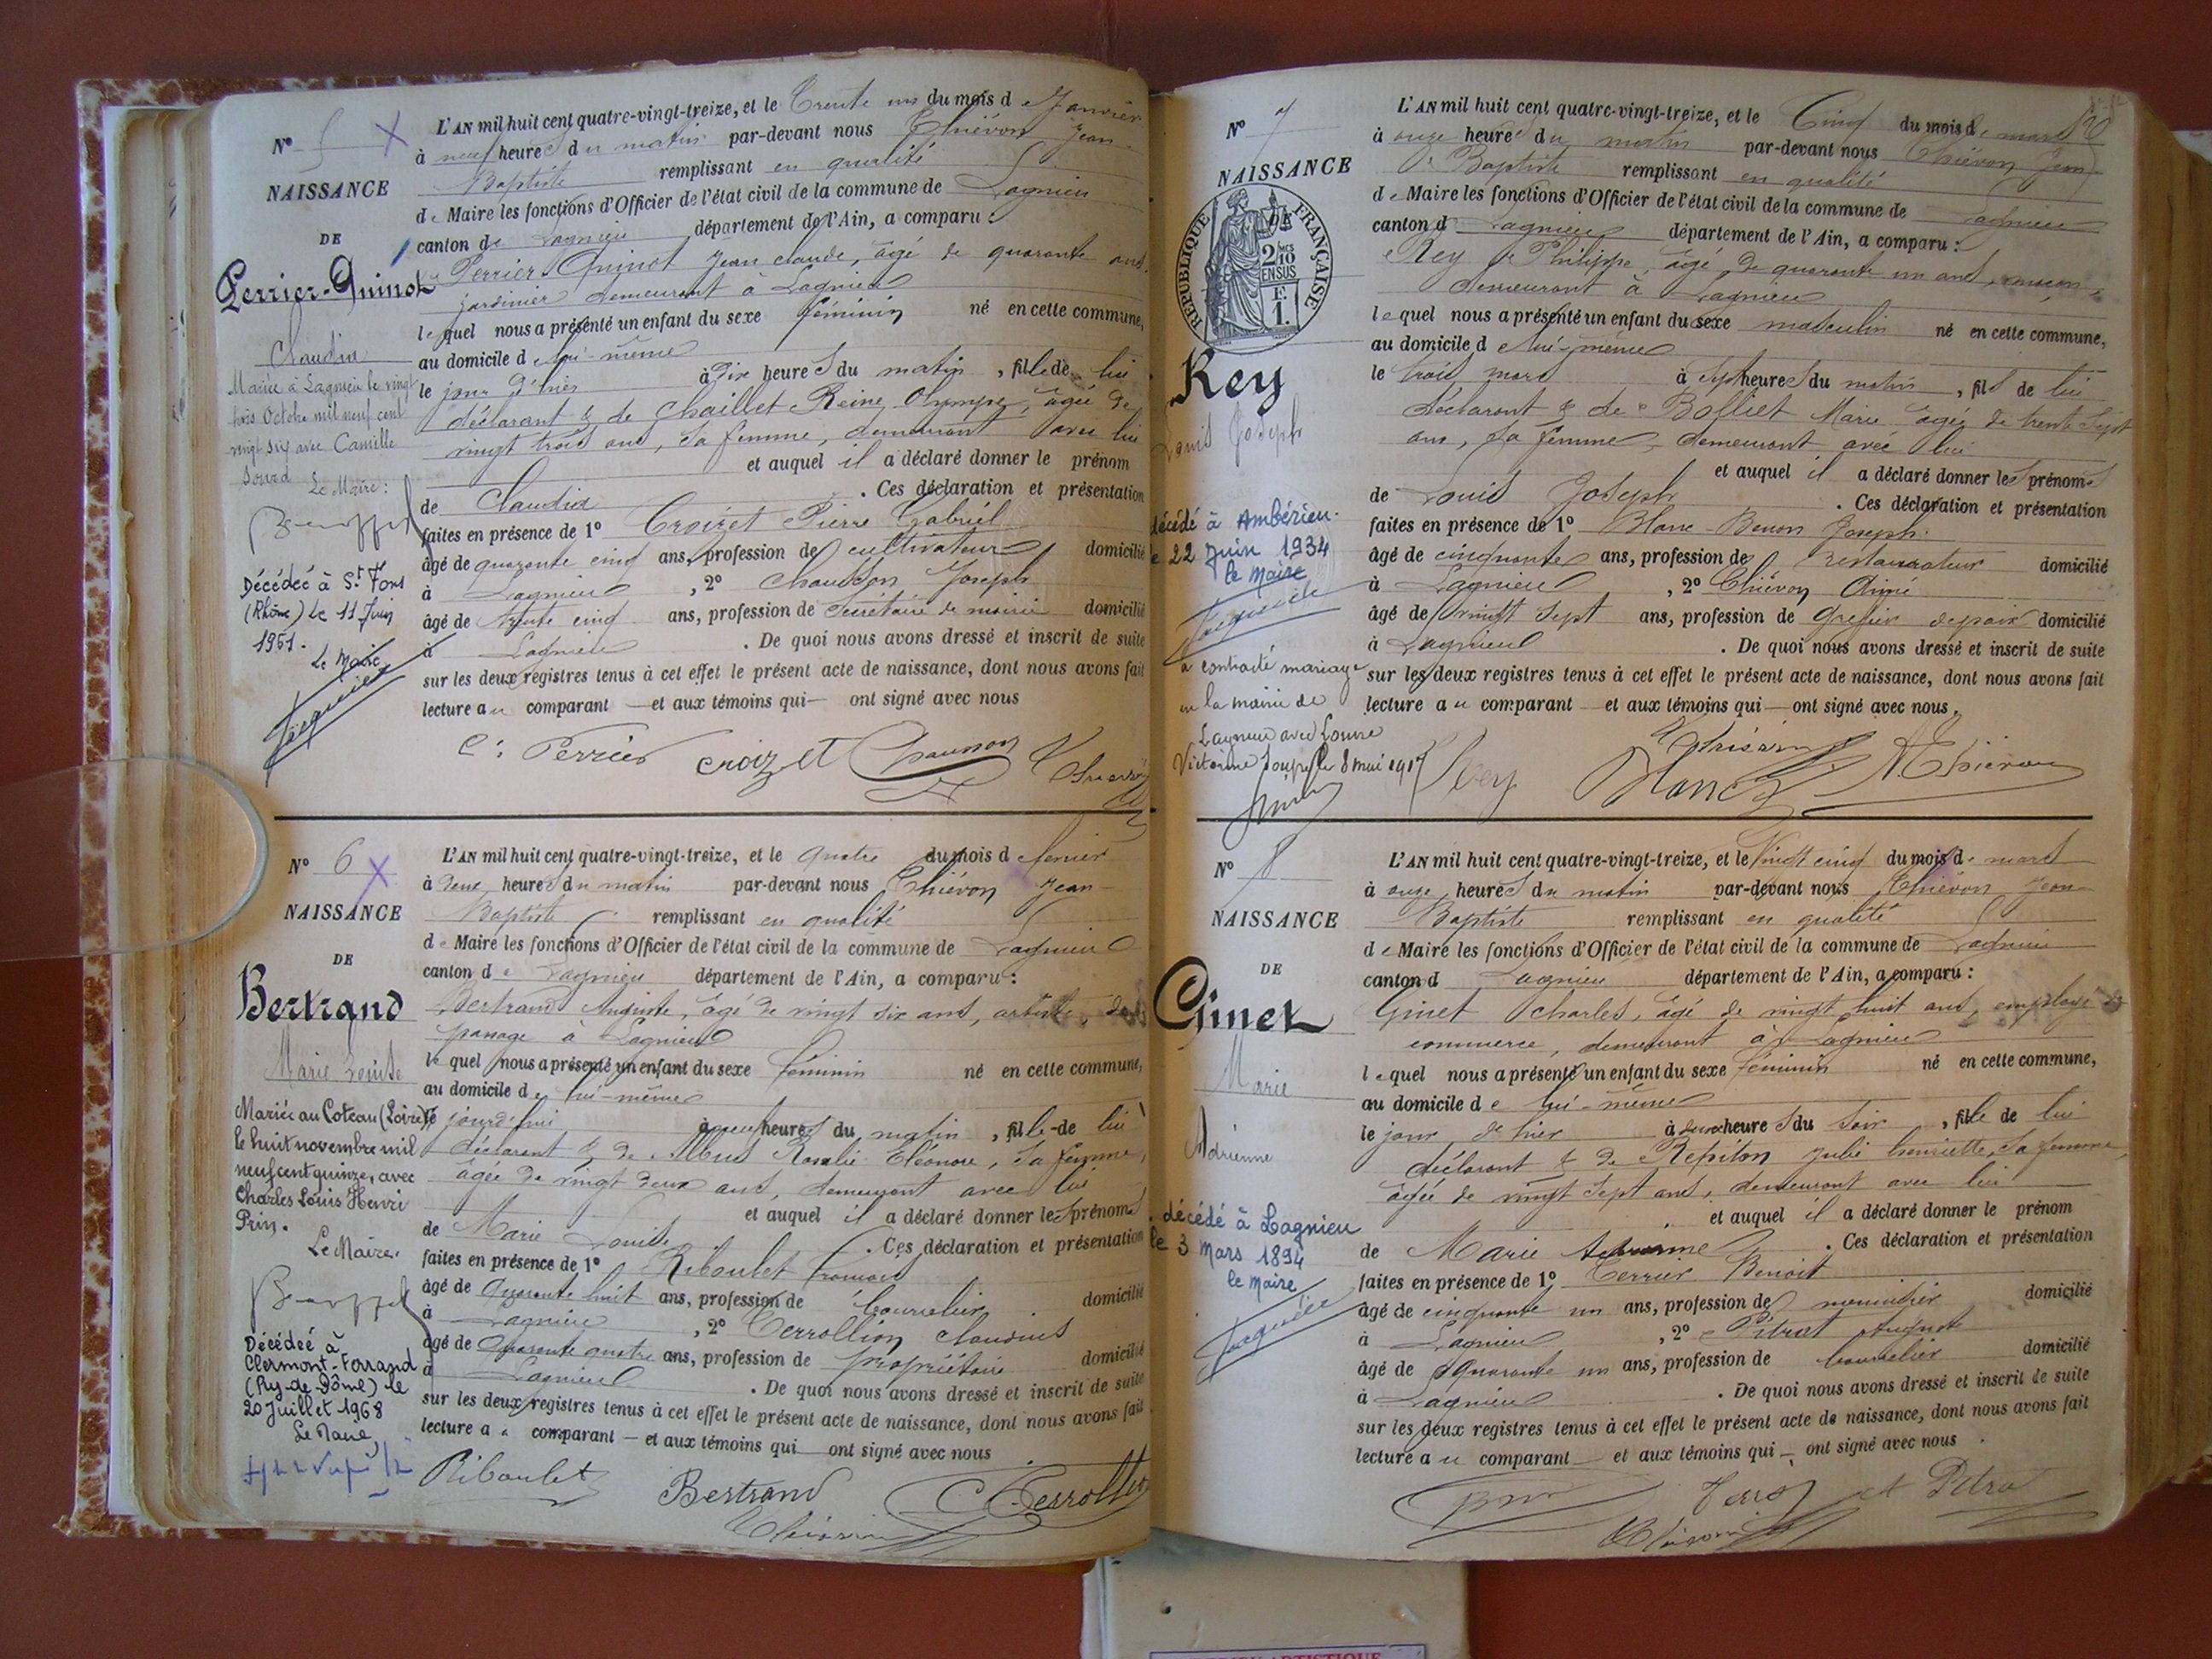 N° 5
NAISSANCE
DE
Perrier-Quinot
Claudia
Mariée à Lagnieu le vingt
trois Octobre mil neuf cent
vingt six avec Camille
Sourd
Le Maire:
Décédée à St Fons
(Rhône) le 11 Juin
1961.
Le Maire
L'AN mil huit cent quatre-vingt-treize, et le Trente un du mois de Janvier
à neuf heures du matin par-devant nous Thiévon Jean
Baptiste remplissant en qualité
de Maire les fonctions d'Officier de l'état civil de la commune de Lagnieu
canton de Lagnieu département de l'Ain, a comparu :
Perrier-Quinot Jean Claude, âgé de quarante ans
jardinier demeurant à Lagnieu
lequel nous a présenté un enfant du sexe féminin né en cette commune,
au domicile de lui-même
le jour d'hier à dix heures du matin, fille de lui
déclarant & de Chaillet Reine Olympe, âgée de
vingt trois ans, sa femme, demeurant avec lui
et auquel il a déclaré donner le prénom
de Claudia . Ces déclaration et présentation
faites en présence de 1° Croizet Pierre Gabriel
âgé de quarante cinq ans, profession de cultivateur domicilié
à Lagnieu , 2° Chausson Joseph
âgé de trente cinq ans, profession de Secrétaire de mairie domicilié
à Lagnieu . De quoi nous avons dressé et inscrit de suite
sur les deux registres tenus à cet effet le présent acte de naissance, dont nous avons fait
lecture au comparant et aux témoins qui ont signé avec nous
C. Perrier Croizet Chausson
N° 6
NAISSANCE
DE
Bertrand
Marie Louise
Mariée au Coteau (Loire)
le huit novembre mil
neuf cent quinze, avec
Charles Louis Henri
Prin.
Le Maire.
Décédée à
Clermont-Ferrand
(Puy-de-Dôme) le
20 Juillet 1968
Le Maire
L'AN mil huit cent quatre-vingt-treize, et le quatre du mois de février
à heures du matin par-devant nous Thiévon Jean-
Baptiste remplissant en qualité
de Maire les fonctions d'Officier de l'état civil de la commune de Lagnieu
canton de Lagnieu département de l'Ain, a comparu :
Bertrand Auguste, âgé de vingt six ans, artiste, de
passage à Lagnieu
lequel nous a présenté un enfant du sexe féminin né en cette commune,
au domicile de lui-même
le jourd'hui à heures du matin, fille de lui
déclarant & de Albus Rosalie Eléonore, sa femme,
âgée de vingt deux ans, demeurant avec lui
et auquel il a déclaré donner les prénoms
de Marie Louise . Ces déclaration et présentation
faites en présence de 1° Riboulet François
âgé de quarante huit ans, profession de bourrelier domicilié
à Lagnieu , 2° Terrollion Claudius
âgé de quarante quatre ans, profession de propriétaire domicilié
à Lagnieu . De quoi nous avons dressé et inscrit de suite
sur les deux registres tenus à cet effet le présent acte de naissance, dont nous avons fait
lecture au comparant et aux témoins qui ont signé avec nous
Riboulet Bertrand
N° 7
NAISSANCE
REPUBLIQUE FRANÇAISE
2 10
EN SUS
E.
1.
Rey
Louis Joseph
décédé à Ambérieu
le 22 Juin 1934
le Maire
a contracté mariage
en la mairie de
Lagnieu avec Louise
Victorine le 8 mai 1917
L'AN mil huit cent quatre-vingt-treize, et le Cinq du mois de mars
à onze heures du matin par-devant nous Thiévon Jean
Baptiste remplissant en qualité
de Maire les fonctions d'Officier de l'état civil de la commune de Lagnieu
canton d Lagnieu département de l'Ain, a comparu :
Rey Philippe, âgé de quarante un ans, maçon,
demeurant à Lagnieu
lequel nous a présenté un enfant du sexe masculin né en cette commune,
au domicile de lui-même
le trois mars à sept heures du matin, fils de lui
déclarant & de Bolliet Marie âgée de trente sept
ans, sa femme, demeurant avec lui
et auquel il a déclaré donner les prénoms
de Louis Joseph . Ces déclaration et présentation
faites en présence de 1° Blanc-Benon Joseph
âgé de cinquante ans, profession de restaurateur domicilié
à Lagnieu , 2° Thiévon Aimé
âgé de vingt sept ans, profession de Greffier de paix domicilié
à Lagnieu . De quoi nous avons dressé et inscrit de suite
sur les deux registres tenus à cet effet le présent acte de naissance, dont nous avons fait
lecture au comparant et aux témoins qui ont signé avec nous.
Rey Blanc A Thiévon
N° 8
NAISSANCE
DE
Ginet
Marie
Adrienne
décédé à Lagnieu
le 3 Mars 1894
le Maire
L'AN mil huit cent quatre-vingt-treize, et le Vingt cinq du mois de mars
à onze heures du matin par-devant nous Thiévon Jean
Baptiste remplissant en qualité
de Maire les fonctions d'Officier de l'état civil de la commune de Lagnieu
canton d Lagnieu département de l'Ain, a comparu :
Ginet Charles, âgé de vingt huit ans, employé de
commerce, demeurant à Lagnieu
lequel nous a présenté un enfant du sexe féminin né en cette commune,
au domicile de lui-même
le jour d'hier à heures du soir, fille de lui
déclarant & de Repiton Julie henriette, sa femme,
âgée de vingt sept ans, demeurant avec lui
et auquel il a déclaré donner le prénom
de Marie Adrienne . Ces déclaration et présentation
faites en présence de 1° Terrier Benoit
âgé de cinquante un ans, profession de menuisier domicilié
à Lagnieu , 2° Pitrat Auguste
âgé de quarante un ans, profession de bourrelier domicilié
à Lagnieu . De quoi nous avons dressé et inscrit de suite
sur les deux registres tenus à cet effet le présent acte de naissance, dont nous avons fait
lecture au comparant et aux témoins qui ont signé avec nous.